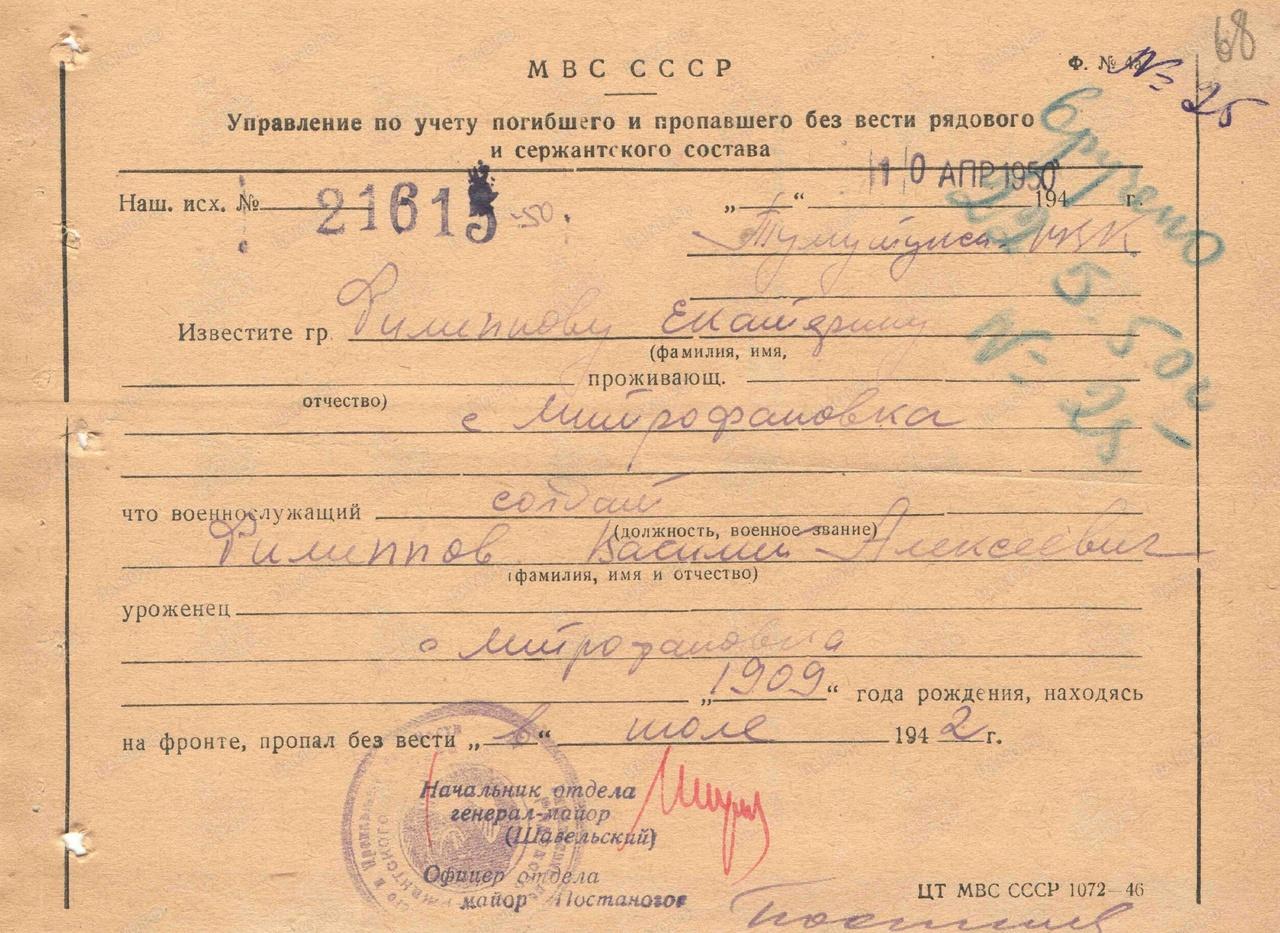 68
МВС СССР
Ф. № 4а
№ 25
Управление по учету погибшего и пропавшего без вести рядового
и сержантского состава
Вручено
22 5.50г
№ 25
Наш. исх. № 21615 -50.
10 АПР 1950
„ “ 194 г.
РВК.
Известите гр. Филиппову Екатерину
(фамилия, имя,
проживающ.
отчество)
с Митрофановка
что военнослужащий солдат
(должность, военное звание)
Филиппов Василий Алексеевич
(фамилия, имя и отчество)
уроженец
с Митрофановка
„1909“ года рождения, находясь
на фронте, пропал без вести „в“ июле 1942 г.
Начальник отдела
генерал-майор
(Шавельский)
Офицер отдела
майор Постаногов
ЦТ МВС СССР 1072—46